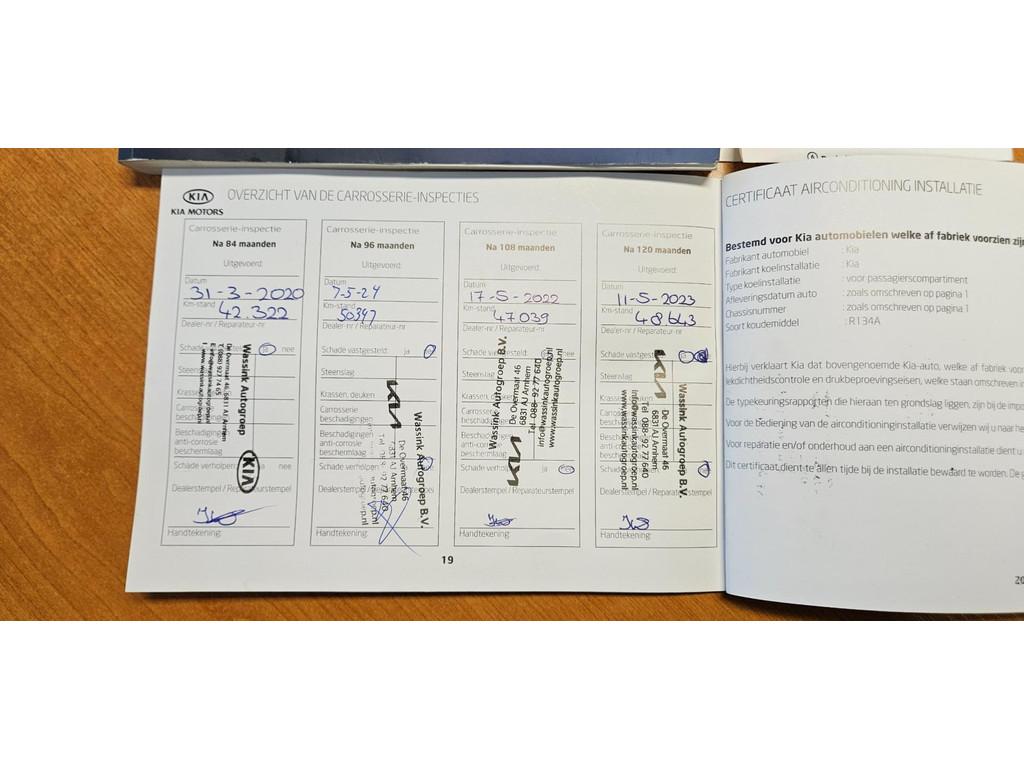 KIA
KIA MOTORS
OVERZICHT VAN DE CARROSSERIE-INSPECTIES
Carrosserie-inspectie
Na 84 maanden
Uitgevoerd:
Datum
31-3-2020
Km-stand
42.322
Dealer-nr / Reparateur-nr
Schade
ja
nee
Steenslag
Krassen, deuken
Carrosserie
beschadigingen
Beschadigingen
anti-corrosie
beschermlaag
Schade verholpen:
nee
Dealerstempel / Reparateurstempel
Handtekening:
Wassink Autogroep
De Overmaat 46, 6831 AJ Arnhem
KIA
Carrosserie-inspectie
Na 96 maanden
Uitgevoerd:
Datum
7-5-24
Km-stand
50397
Dealer-nr / Reparateur-nr
Schade vastgesteld:
ja
nee
Steenslag
Krassen, deuken
Carrosserie
beschadigingen
Beschadigingen
anti-corrosie
beschermlaag
Schade verholpen:
Dealerstempel / Reparateurstempel
Handtekening:
KIA
Wassink Autogroep B.V.
De Overmaat 46
6831 AJ Arnhem
Carrosserie-inspectie
Na 108 maanden
Uitgevoerd:
Datum
17-5-2022
Km-stand
47039
Dealer-nr / Reparateur-nr
Schade vastgesteld:
ja
nee
Steenslag
Krassen, deuken
Carrosserie
beschadigingen
Beschadigingen
anti-corrosie
beschermlaag
Schade verholpen:
ja
nee
Dealerstempel / Reparateurstempel
Handtekening:
KIA
Wassink Autogroep B.V.
De Overmaat 46
6831 AJ Arnhem
Tel. 088- 92 77 640
info@wassinkautogroep.nl
www.wassinkautogroep.nl
Carrosserie-inspectie
Na 120 maanden
Uitgevoerd:
Datum
11-5-2023
Km-stand
48643
Dealer-nr / Reparateur-nr
Schade vastgesteld:
Steenslag
Krassen, deuken
Carrosserie
beschadigingen
Beschadigingen
anti-corrosie
beschermlaag
Schade verholpen:
nee
Dealerstempel / Reparateurstempel
Handtekening:
KIA
Wassink Autogroep B.V.
De Overmaat 46
6831 AJ Arnhem
Tel. 088- 92 77 640
info@wassinkautogroep.nl
www.wassinkautogroep.nl
19
CERTIFICAAT AIRCONDITIONING INSTALLATIE
Bestemd voor Kia automobielen welke af fabriek voorzien zijn
Fabrikant automobiel : Kia
Fabrikant koelinstallatie : Kia
Type koelinstallatie : voor passagierscompartiment
Afleveringsdatum auto : zoals omschreven op pagina 1
Chassisnummer : zoals omschreven op pagina 1
Soort koudemiddel : R134A
Hierbij verklaart Kia dat bovengenoemde Kia-auto, welke af fabriek voor
lekdichtheidscontrole en drukbeproevingseisen, welke staan omschreven in
De typekeuringsrapporten die hieraan ten grondslag liggen, zijn bij de impo
Voor de bediening van de airconditioninginstallatie verwijzen wij u naar he
Voor reparatie en/of onderhoud aan een airconditioninginstallatie dient u
Dit certificaat dient te allen tijde bij de installatie bewaard te worden. De
20